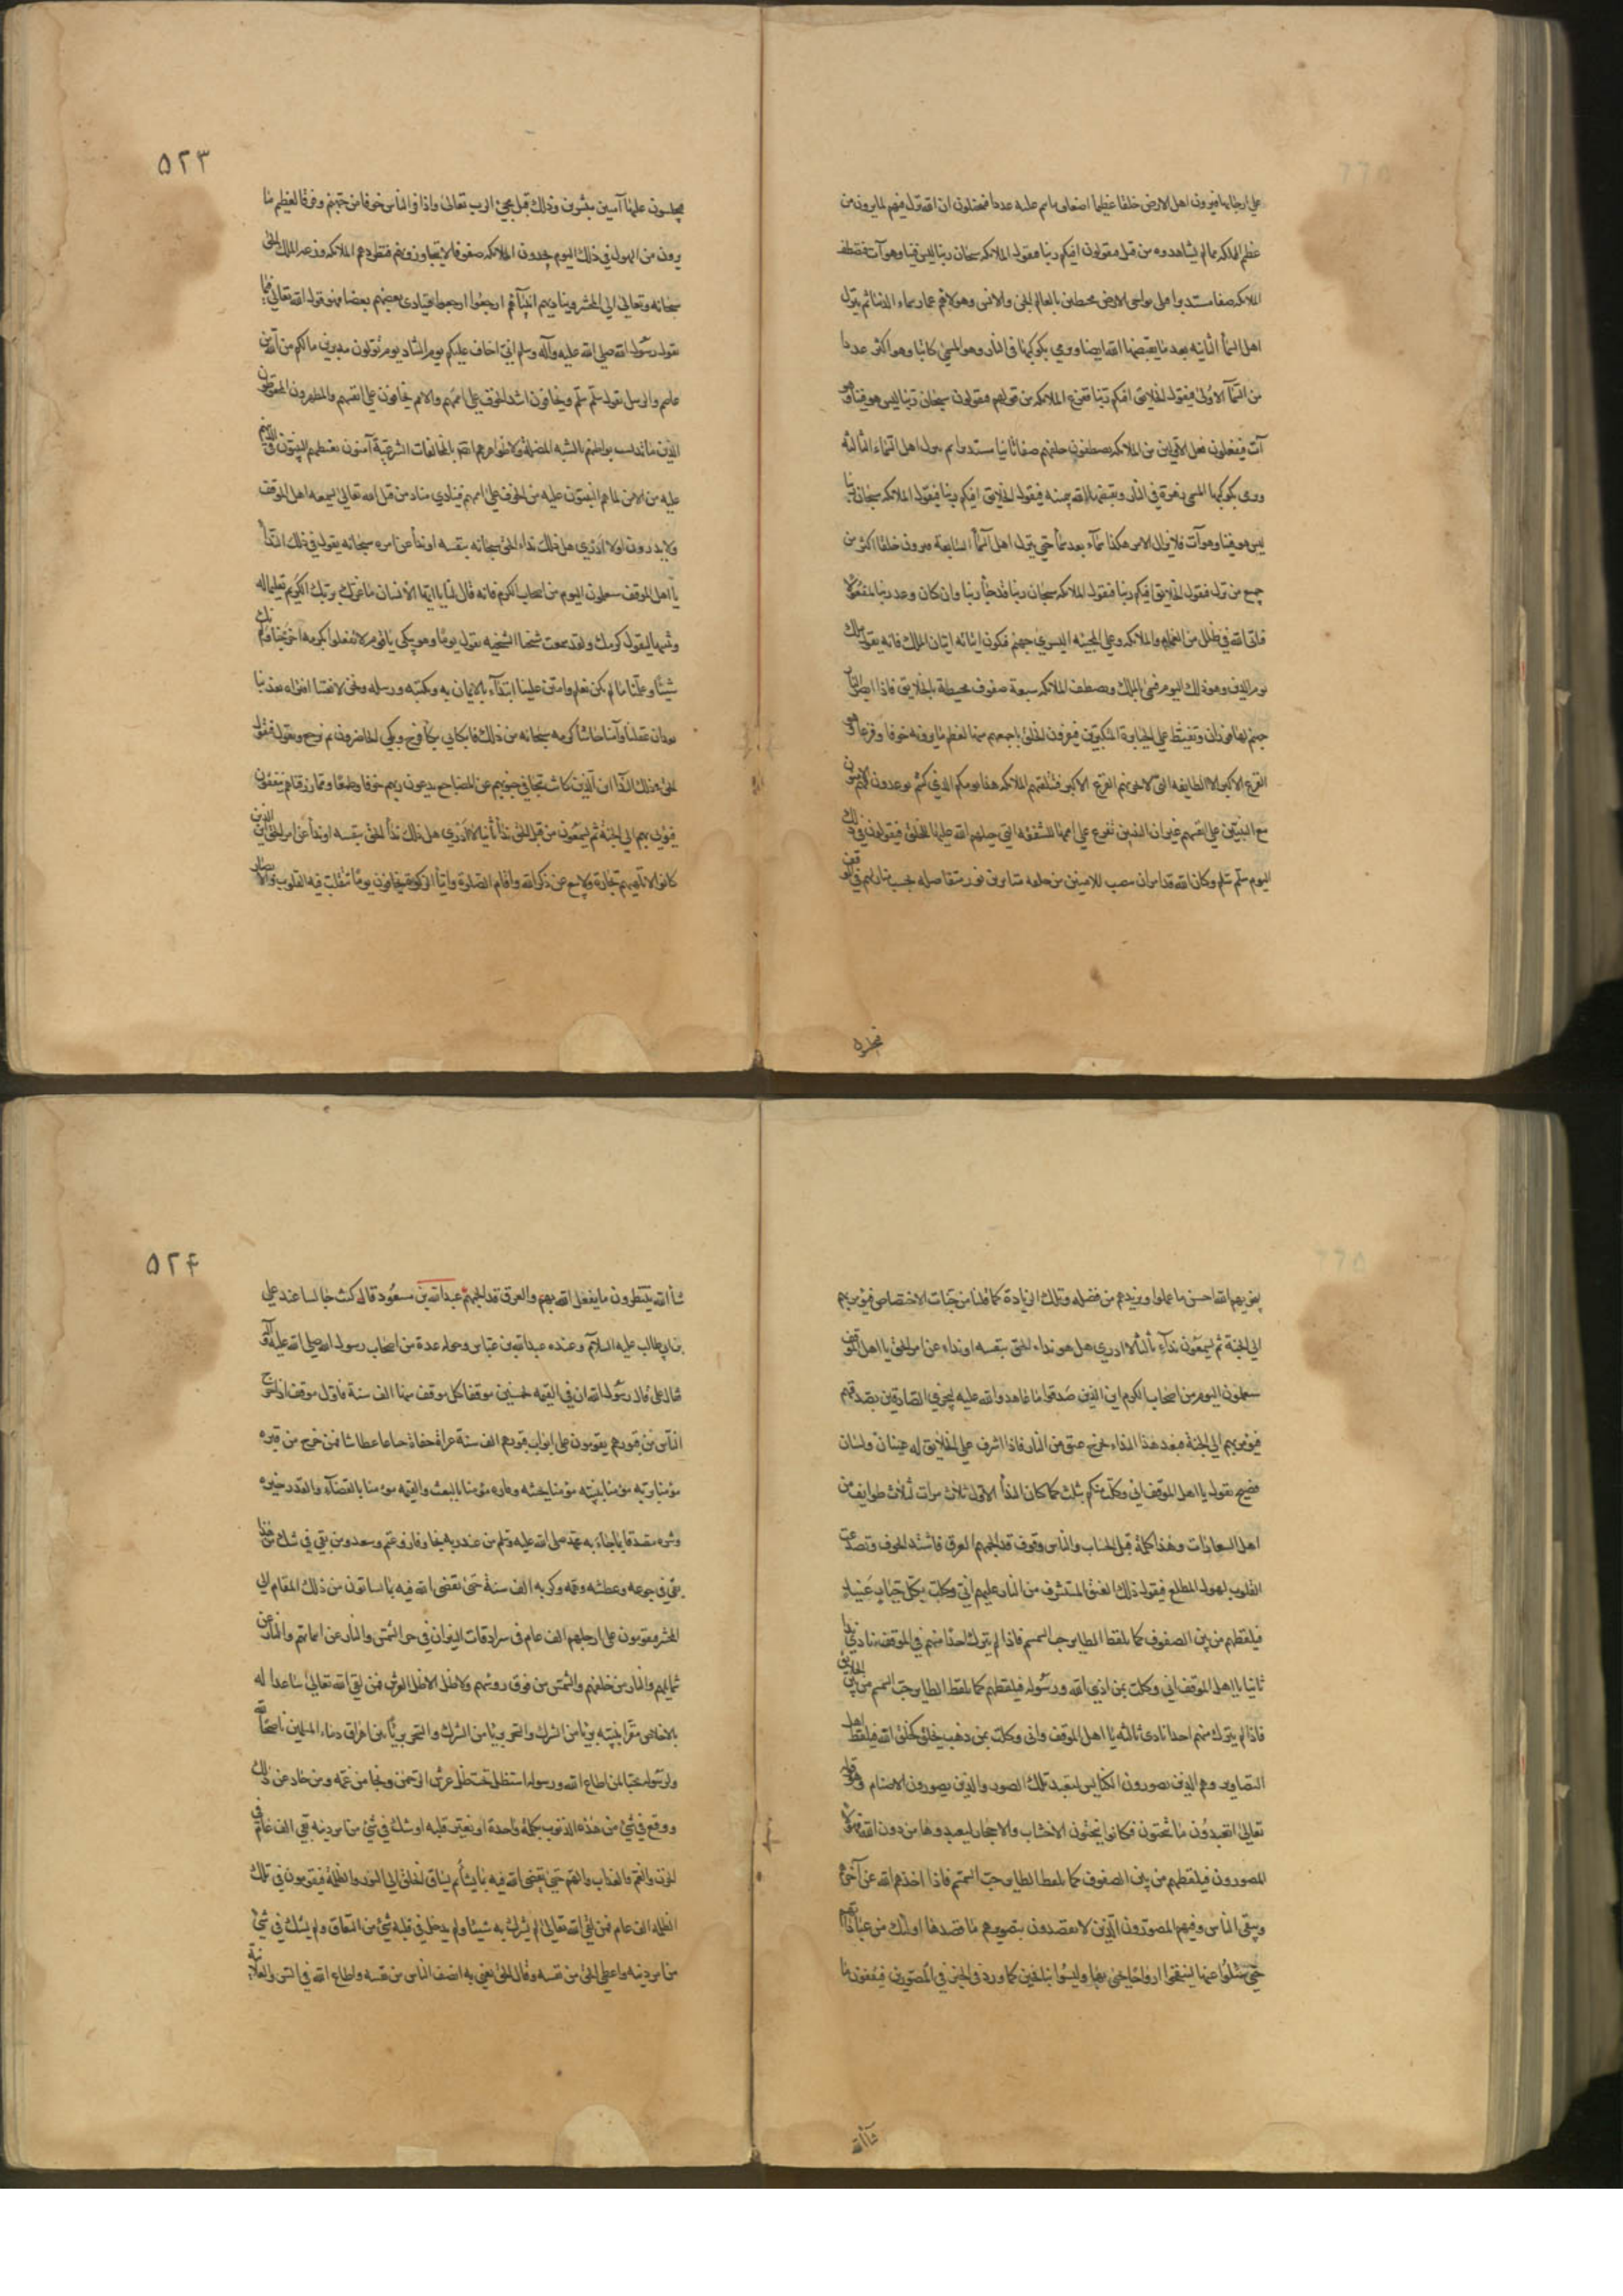 على ارجائها فيرون اهل الارض خلقا عظيما اضعاف ما هم عليه عددا فيتخيلون ان الله نزل فيهم لما يرون من
عظم المملكة مما لم يشاهدوه من قبل فيقولون افيكم ربنا فيقول الملائكة سبحان ربنا ليس فينا وهو آت فتصطف
الملائكة صفا مستديرا على نواحى الارض محيطين بالعالم الجن والانس وهولاء هم عمار سماء الدنيا ثم ينزل
اهل السمأ الثانية بعد ما يقبضها الله ايضا ويرمى بكوكبها فى النار وهو المسمى كاتبا وهو اكثر عددا
من السمآ الاولى فيقول الخلايق افيكم ربنا فتفزع الملائكة من قولهم فيقولون سبحان ربنا ليس هو فينا وهو
آت فيفعلون فعل الاولين من الملائكة يصطفون خلفهم صفا ثانيا مستديرا ثم ينزل اهل السماء الثالثة
ويرمى بكوكبها المسمى زهرة فى النار ويقبضها الله بيمينه فيقول الخلايق افيكم ربنا فيقول الملائكة سبحان ربنا
ليس هو فينا وهو آت فلا يزال الامر هكذا سمآء بعد سمآ حتى ينزل اهل السمآ السابعة فيرون خلقا اكثر من
جميع من نزل فيقول الخلايق افيكم ربنا فيقول الملائكة سبحان ربنا قد جآ ربنا وان كان وعد ربنا لمفعولا
فيأتى الله فى ظلل من الغمام والملائكة وعلى المجنبة اليسرى جهنم فيكون اتيانه اتيان الملك فانه يقول ملك
يوم الدين وهو ذلك اليوم فسمى بالملك ويصطف الملائكة سبعة صفوف محيطة بالخلايق فاذا ابصر الناس
جهنم لها فوران وتغيظ على الجبابرة المتكبرين فيفرون الخلق باجمعهم منها لعظم ما يرونه خوفا وفزعا وهو
الفزع الاكبر الا الطايفة التى لا يحزنهم الفزع الاكبر فتتلقيهم الملائكة هذا يومكم الذى كنتم توعدون فهم الآمنون
مع النبيين على انفسهم غير ان النبيين تفزع على اممها للشفقة التى جبلهم الله عليها للخلق فيقولون فى ذلك
اليوم سلم سلم وكان الله قد امر ان تنصب للامنين من خلقه منابر من نور متفاضلة بحسب منازلهم فى الموقف
فيجلسون
٥٢٣
فيجلسون عليها آمنين مبشرين وذلك قبل مجئ الرب تعالى فاذا فر الناس خوفا من جهنم وفرقا لعظيم ما
يرون من الهول فى ذلك اليوم يجدون الملائكة صفوفا لا يتجاوزونهم فتطردهم الملائكة وزعة الملك الحق
سبحانه وتعالى الى المحشر وتناديهم انبيآؤهم ارجعوا ارجعوا فينادى بعضهم بعضا فهو قول الله تعالى فيما
يقول رسول الله صلى الله عليه وآله وسلم انى اخاف عليكم يوم التناد يوم تولون مدبرين ما لكم من الله من
عاصم والرسل يقول سلم سلم ويخافون اشد الخوف على اممهم والامم يخافون على انفسهم والمطهرون المحفوظون
الذين ما تدنست بواطنهم بالشبه المضلة ولا ظواهرهم ايضا بالمخالفات الشرعية آمنون يغبطهم النبيون فى الذى هم
عليه من الامن لما هم النبيون عليه من الخوف على اممهم فينادى مناد من قبل الله تعالى يسمعه اهل الموقف
ولا يدرون او لا ادرى هل ذلك نداء الحق سبحانه بنفسه او نداأ عن امره سبحانه يقول فى ذلك الندأ
يا اهل الموقف ستعلمون اليوم من اصحاب الكرم فانه قال لنا يا ايها الانسان ما غرك بربك الكريم تعليما له
وتنبيها ليقول كرمك ولقد سمعت شيخنا الشختة يقول يوما وهو يبكى يا قوم لا تفعلوا بكرمه اخرجنا ولم نك
شيئا وعلمنا ما لم نكن نعلم وامتن علينا ابتدآء بالايمان به وبكتبه ورسله ونحن لا نعقل افتراه يعذبنا
بعد ان عقلنا وآمنا حاشا كرمه سبحانه من ذلك فابكانى بكآ فرح وبكى الحاضرون ثم نرجع ونقول فيقول
الحق فى ذلك الندا اين الذين كانت تتجافى جنوبهم عن المضاجع يدعون ربهم خوفا وطمعا ومما رزقناهم ينفقون
فيؤتى بهم الى الجنة ثم يسمعون من قبل الحق ندأ ثانيا لا ادرى هل ذلك ندأ الحق بنفسه او ندأ عن امر الحق اين الذين
كانوا لا تلهيهم تجارة ولا بيع عن ذكر الله واقام الصلوة وايتآ الزكوة يخافون يوما تتقلب فيه القلوب والابصار
ليجزيهم الله احسن ما عملوا ويزيدهم من فضله وتلك الزيادة كما قلنا من جنات الاختصاص فيؤمر بهم
الى الجنة ثم يسمعون نداء ثالثا لا ادرى هل هو نداء الحق بنفسه او نداء عن امر الحق يا اهل الموقف
ستعلمون اليوم من اصحاب الكرم اين الذين صدقوا ما عاهدوا الله عليه ليجزى الصادقين بصدقهم
فيؤمر بهم الى الجنة فبعد هذا النداء يخرج عنق من النار فاذا اشرف على الخلايق له عينان ولسان
فصيح يقول يا اهل الموقف انى وكلت منكم بثلث كما كان الندأ الاول ثلاث مرات لثلاث طوايف من
اهل السعادات وهذا كله قبل الحساب والناس وقوف قد الجمهم العرق فاشتد الخوف وتصدعت
القلوب لهول المطلع فيقول ذلك العنق المستشرف من النار عليهم انى وكلت بكل جبار عنيد
فيلقطهم من بين الصفوف كما يلقط الطاير حب السمسم فاذا لم يترك احدا منهم فى الموقف نادى ندا
ثانيا يا اهل الموقف انى وكلت بمن اذى الله ورسوله فيلقطهم كما يلقط الطاير حب السمسم من بين الخلائق
فاذا لم يترك منهم احدا نادى ثالثة يا اهل الموقف وانى وكلت بمن ذهب يخلق كخلق الله فيلقط اهل
التصاوير وهم الذين يصورون الكنايس لتعبد تلك الصور والذين يصورون الاصنام وهو قوله
تعالى اتعبدون ما تنحتون فكانوا ينحتون الاخشاب والاحجار ليعبدوها من دون الله فهؤلا
المصورون فيلقطهم من بين الصفوف كما يلقط الطاير حب السمسم فاذا اخذهم الله عن آخرهم
وبقى الناس وفيهم المصورون الذين لا يقصدون بتصويرهم ما قصدها اولئك من عبادتها
حتى يسئلوا عنها لينفخوا ارواحا يحيى بها وليسوا بنافخين كما ورد فى الخبر فى المصورين فيقفون ما
شآ الله
٥٢٤
شأ الله ينتظرون ما يفعل الله بهم والعرق قد الجمهم عبد الله بن مسعود قال كنت جالسا عند على
بن ابى طالب عليه السلام وعنده عبد الله بن عباس وحوله عدة من اصحاب رسول الله صلى الله عليه وآله
فقال على قال رسول الله ان فى القيمة لخمسين موقفا كل موقف منها الف سنة فاول موقف اذا خرج
الناس من قبورهم يقومون على ابواب قبورهم الف سنة عراة حفاة جياعا عطاشا فمن خرج من قبره
مؤمنا بربه مؤمنا بنبيه مؤمنا بجنته وناره مؤمنا بالبعث والقيمة مؤمنا بالقضآء والقدر خيره
وشره مصدقا بما جآء به محمد صلى الله عليه وسلم من عند ربه نجا وفاز وغنم وسعد ومن بقى فى شك من هذا
بقى فى جوعه وعطشه وغمه وكربه الف سنة حتى يقضى الله فيه بما يشا ثم يساقون من ذلك المقام الى
المحشر فيقومون على ارجلهم الف عام فى سرادقات النيران فى حر الشمس والنار عن ايمانهم والنار عن
شمايلهم والنار من خلفهم والشمس من فوق رؤسهم ولا ظل الا ظل العرش فمن لقى الله تعالى شاهدا له
بالاخلاص مقرا بنبيه بريا من الشرك والسحر وبريا من اهراق دماء المسلمين ناصحا لله
ولرسوله محبا لمن اطاع الله ورسوله استظل تحت ظل عرش الرحمن ونجا من غمه ومن حاد عن ذلك
ووقع فى شئ من هذه الذنوب بكلمة واحدة او تغير قلبه او شك فى شئ من امر دينه بقى الف عام فى
الحزن والهم والعذاب والهم حتى يقضى الله فيه بما يشآ ثم يساق الخلق الى النور والظلمة فيقيمون فى تلك
الظلمة الف عام فمن لقى الله تعالى لم يشرك به شيئا ولم يدخل فى قلبه شئ من النفاق ولم يشك فى شئ
من امر دينه واعطى الحق من نفسه وقال الحق يعنى به انصف الناس من نفسه واطاع الله فى السر والعلانية